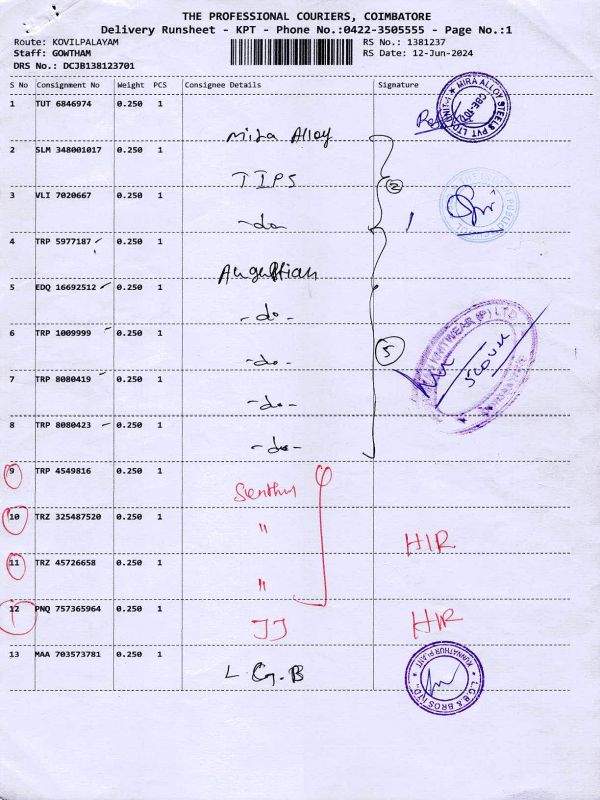 THE PROFESSIONAL COURIERS, COIMBATORE
Delivery Runsheet - KPT - Phone No.:0422-3505555 - Page No.:1
Route: KOVILPALAYAM RS No.: 1381237
Staff: GOWTHAM RS Date: 12-Jun-2024
DRS No.: DCJB138123701
S No Consignment No Weight PCS Consignee Details Signature
1 TUT 6846974 0.250 1 Mira Alloy
2 SLM 348001017 0.250 1 TIPS
3 VLI 7020667 0.250 1 -do-
2
4 TRP 5977187 0.250 1
5 EDQ 16692512 0.250 1 -do-
6 TRP 1009999 0.250 1 -do-
5
7 TRP 8080419 0.250 1 -do-
8 TRP 8080423 0.250 1 -do-
9 TRP 4549816 0.250 1
10 TRZ 325487520 0.250 1 "
11 TRZ 45726658 0.250 1 "
HIR
12 PNQ 757365964 0.250 1 JJ HIR
13 MAA 703573781 0.250 1 L.G.B
MIRA ALLOY STEELS PVT LTD
KNITWEAR (P) LTD
L.G.B & BROS LTD
KUNNATHUR PLANT